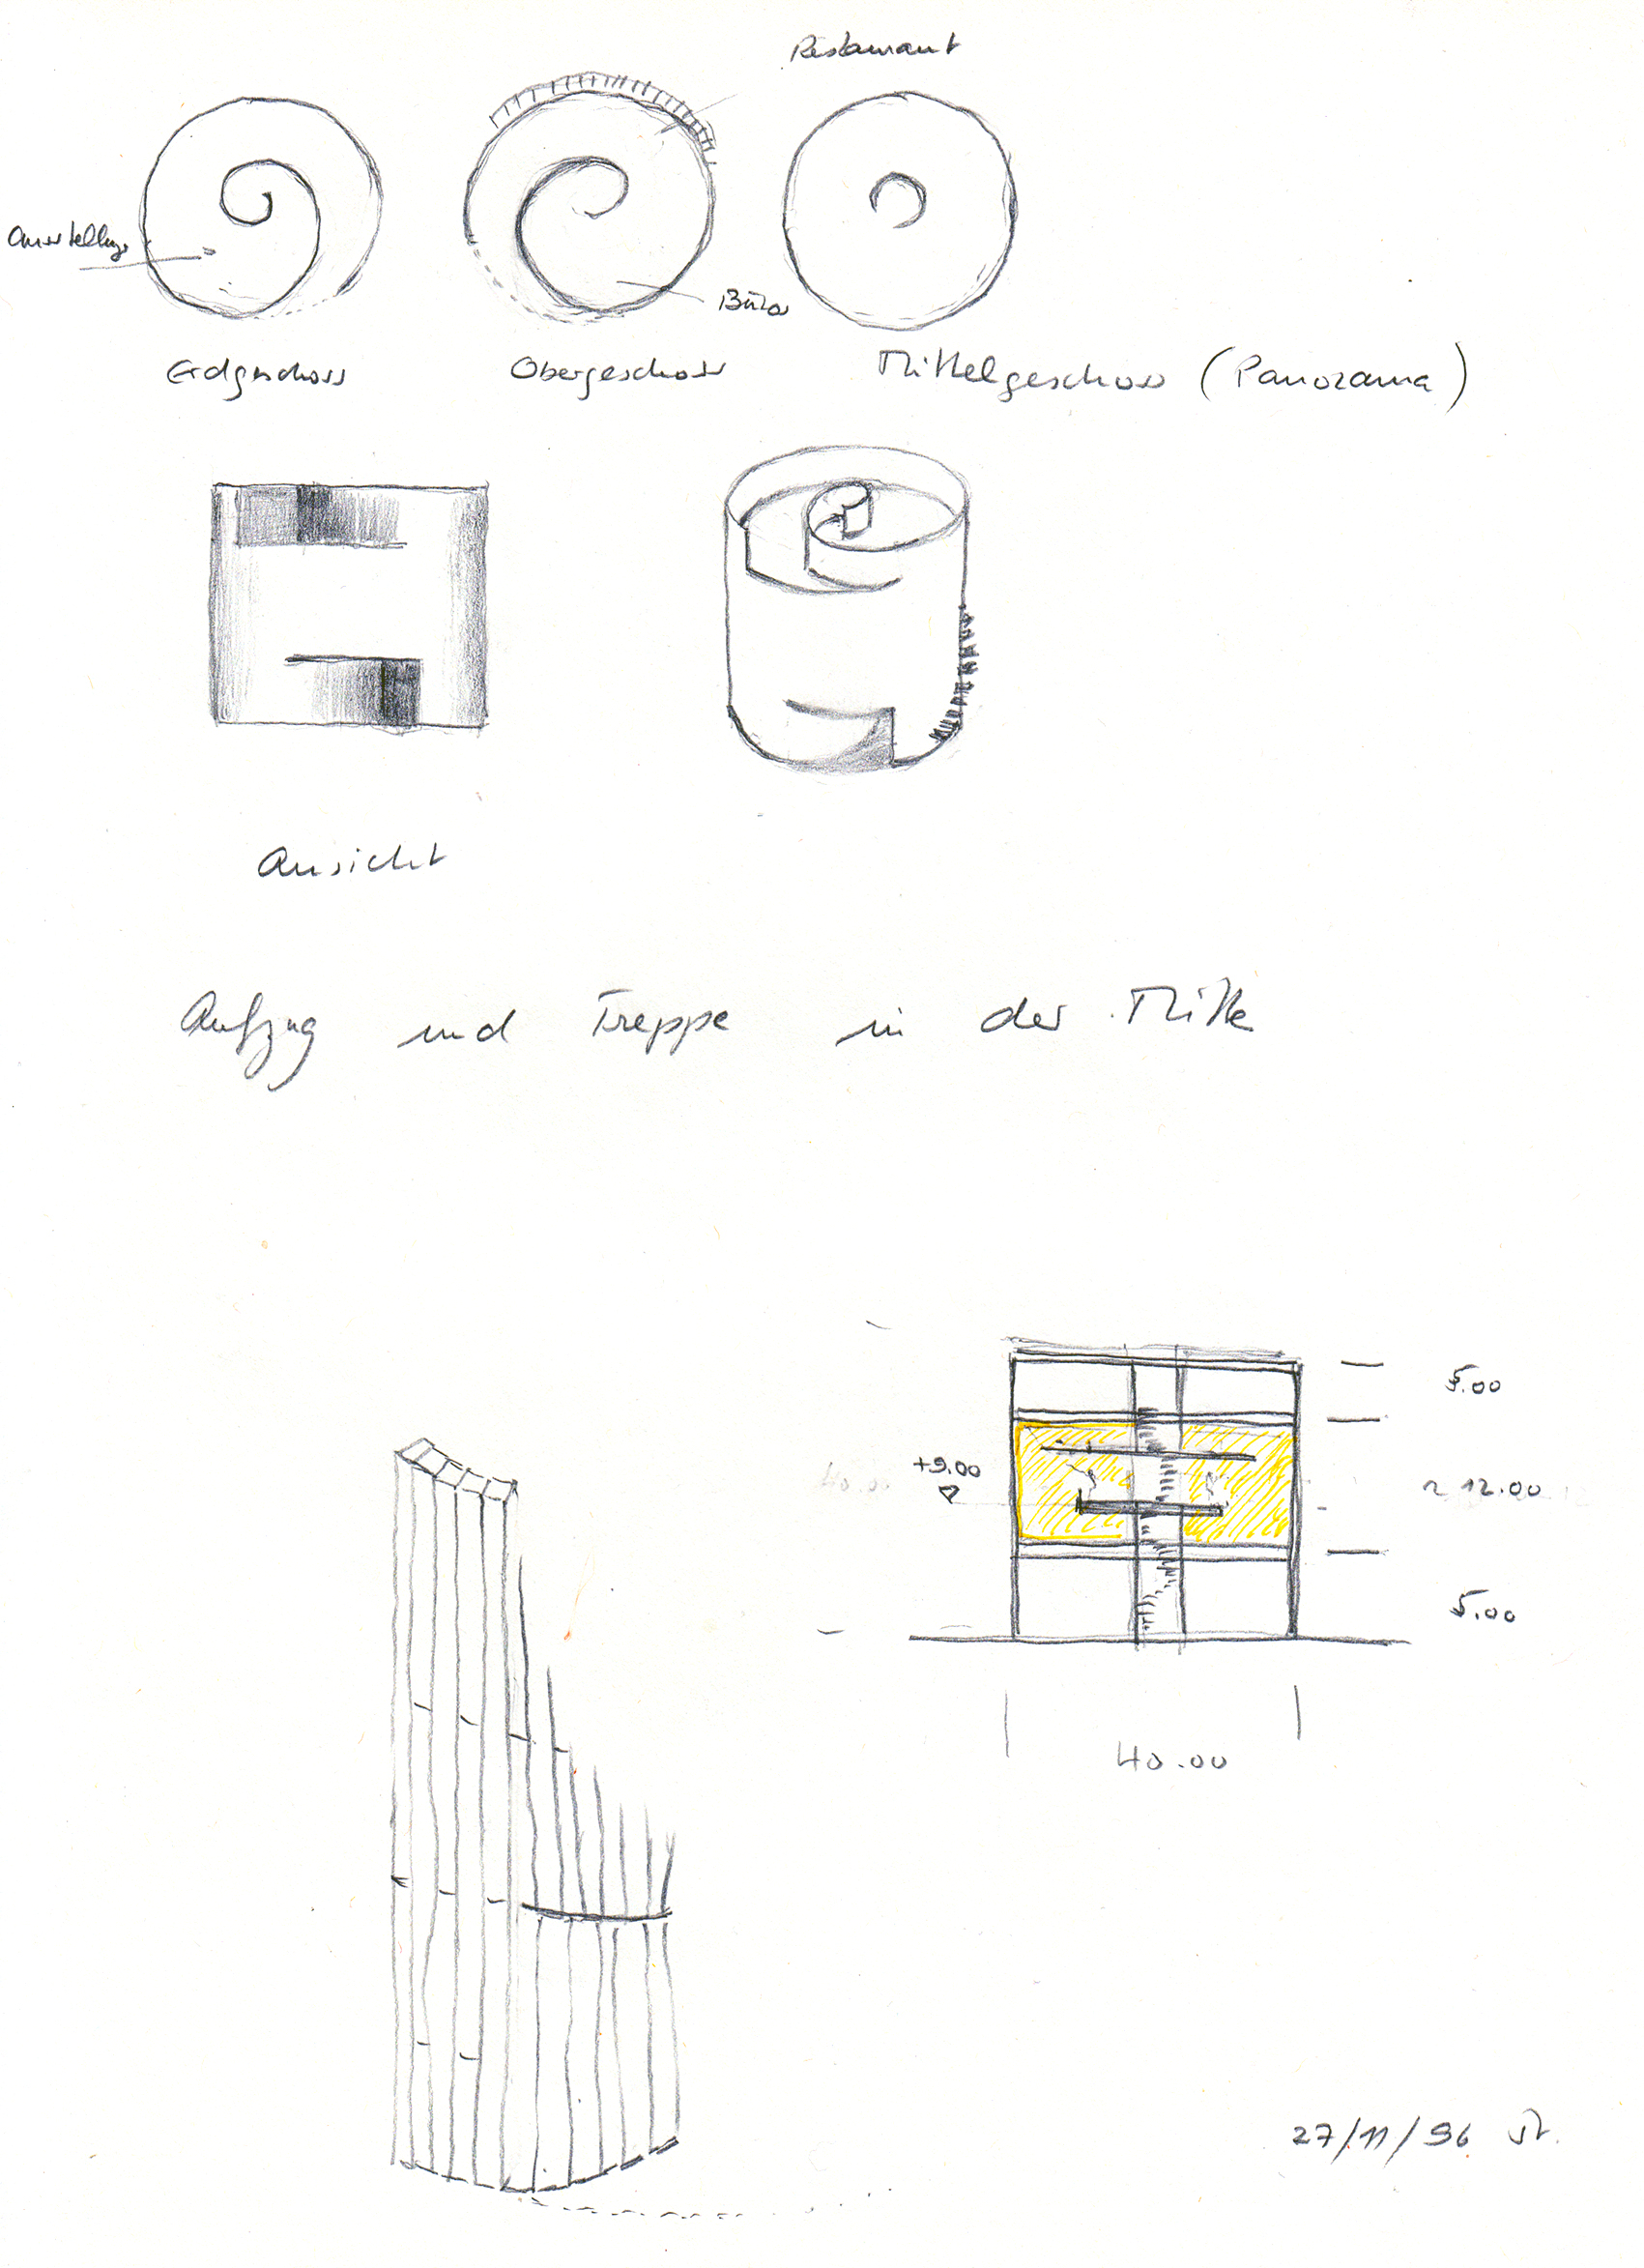 Restaurant
Ausstellung
Büro
Erdgeschoss
Obergeschoss
Mittelgeschoss (Panorama)
Ansicht
Aufzug und Treppe in der Mitte
5.00
+9.00
40.00
~ 12.00
5.00
40.00
27/11/96